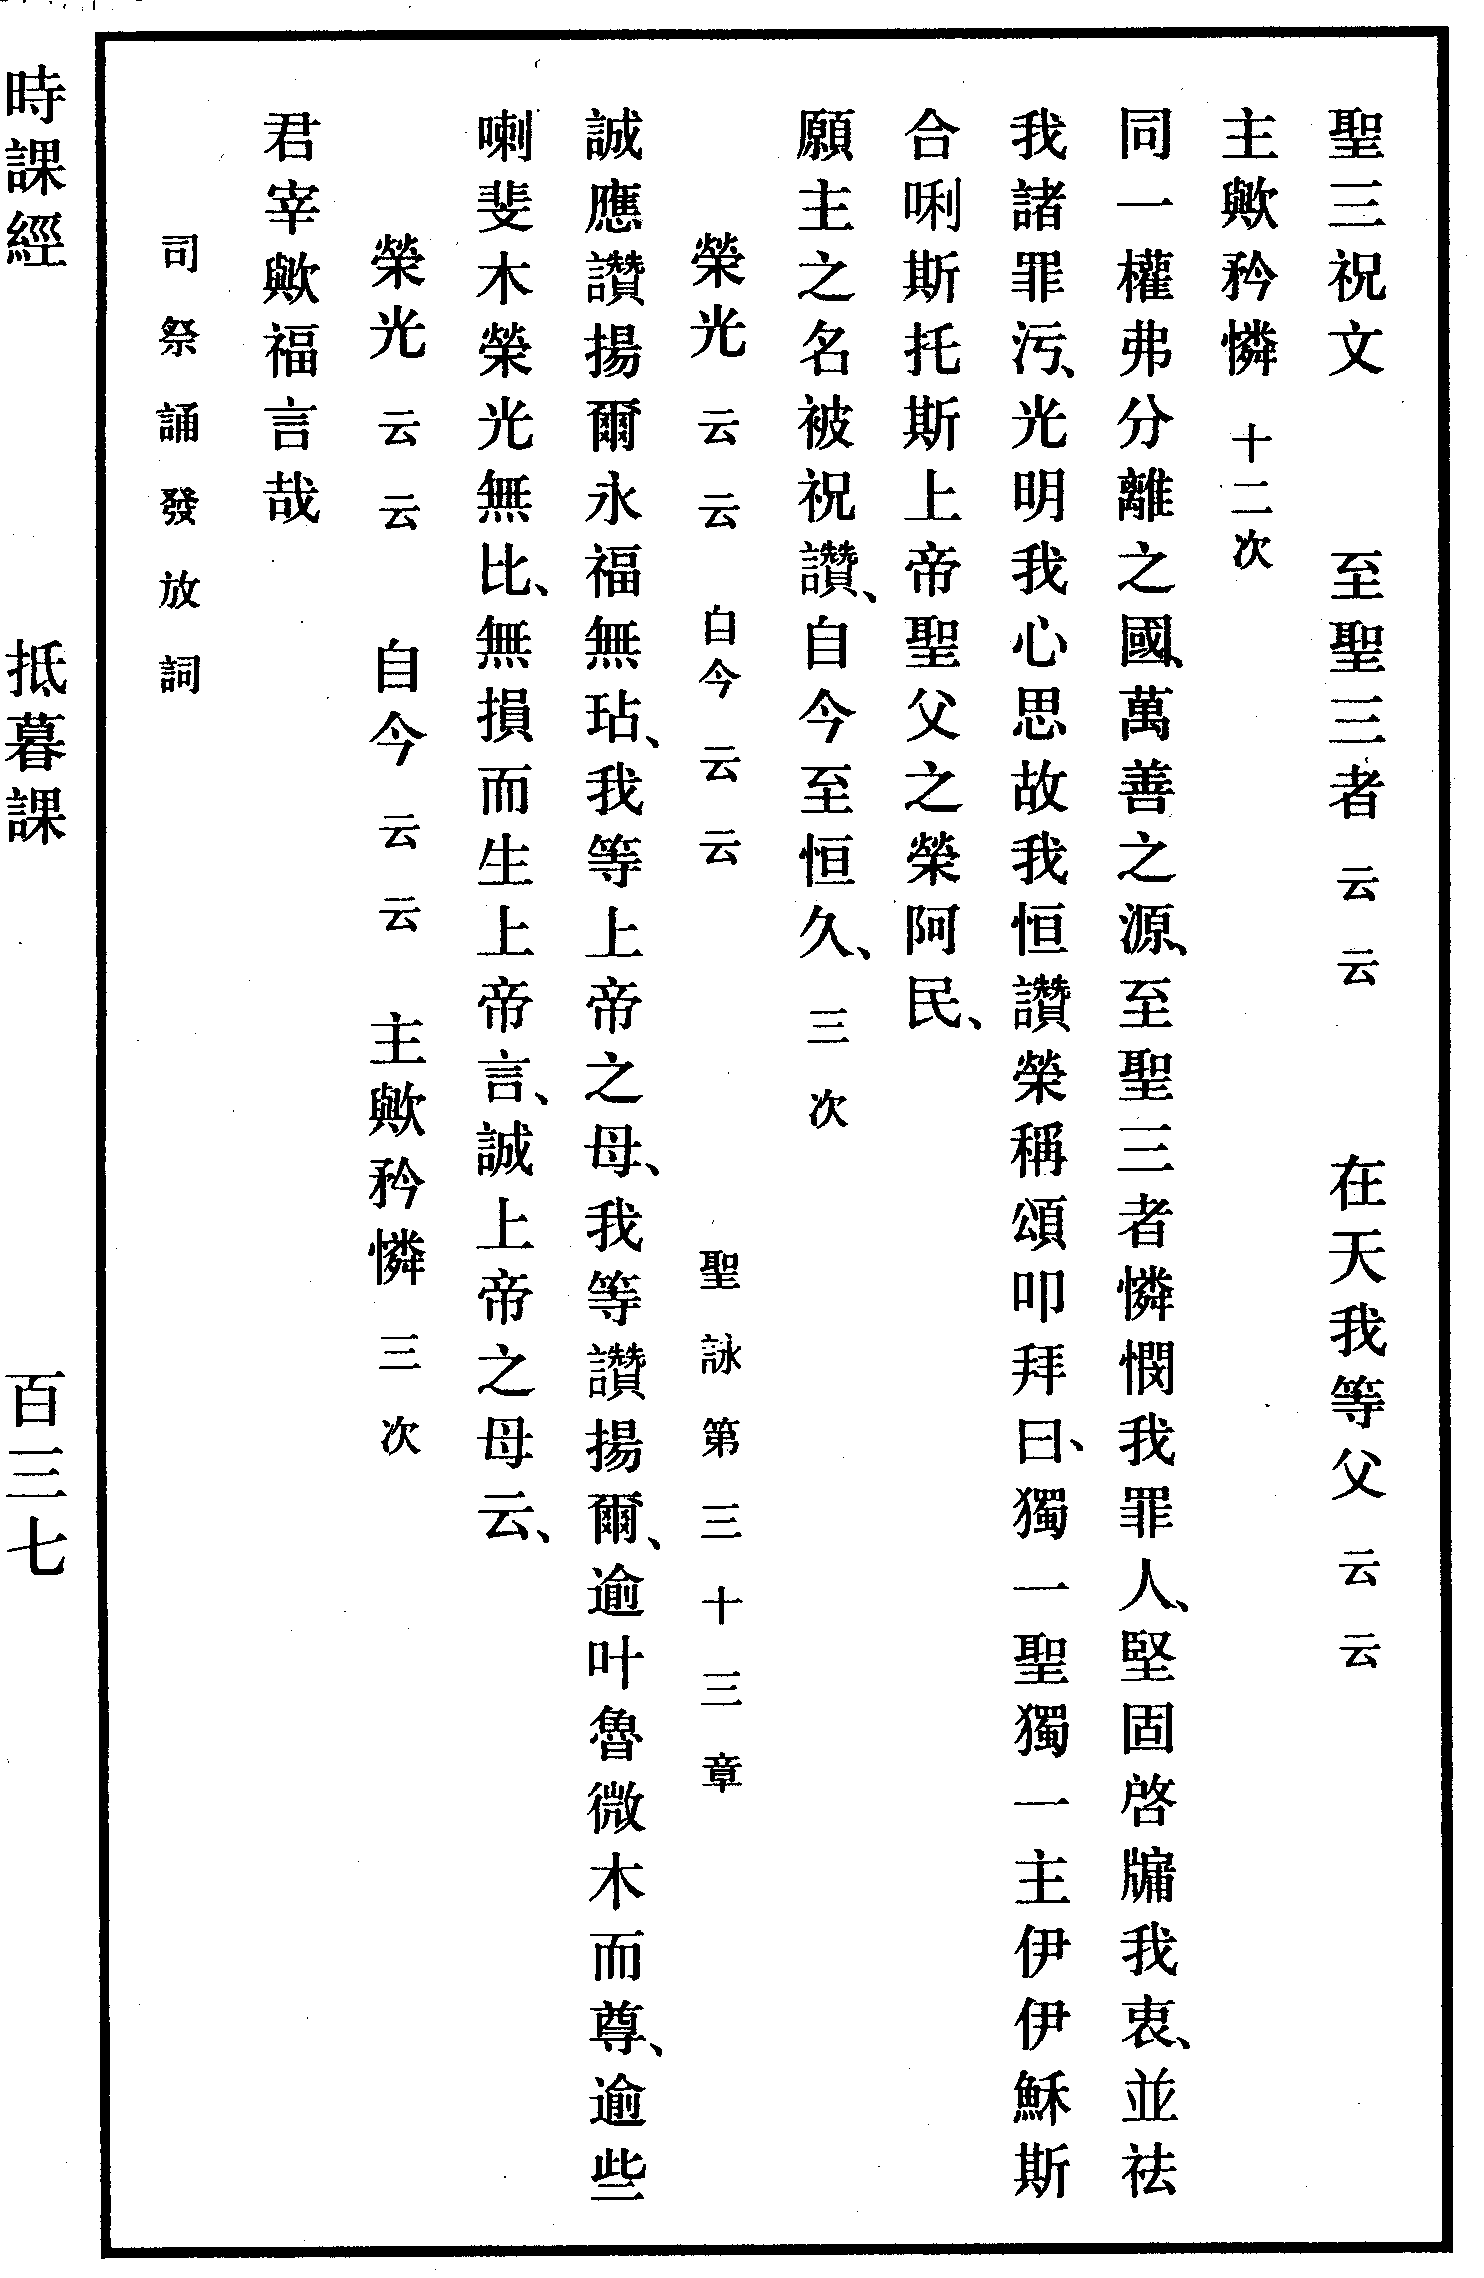 聖三祝文　至聖三者　云云　在天我等父　云云
主歟矜憐　十二次
同一權弗分離之國、萬善之源、至聖三者憐憫我罪人、堅固啓牖我衷、並祛
我諸罪污、光明我心思故我恒讚榮稱頌叩拜曰、獨一聖獨一主伊伊穌斯
合唎斯托斯上帝聖父之榮阿民、
願主之名被祝讚、自今至恒久、三次
榮光　云云　自今　云云　聖詠第三十三章
誠應讚揚爾永福無玷、我等上帝之母、我等讚揚爾、逾叶魯微木而尊、逾些
喇斐木榮光無比、無損而生上帝言、誠上帝之母云、
榮光　云云　自今　云云　主歟矜憐　三次
君宰歟福言哉
司祭誦發放詞
時課經　抵暮課　百三七